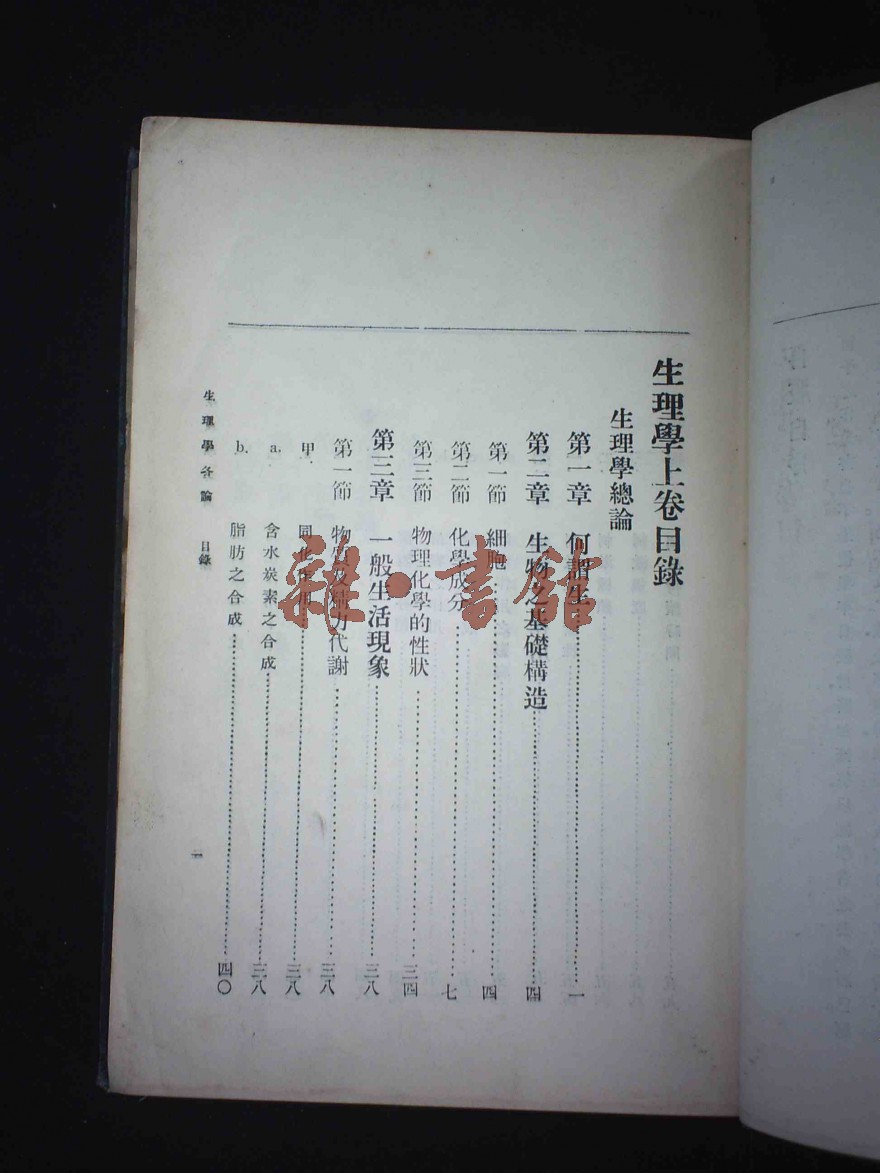 生理學上卷目錄
生理學總論
第一章 何謂生……一
第二章 生物之基礎構造……四
第一節 細胞……四
第二節 化學成分……七
第三節 物理化學的性狀……三四
第三章 一般生活現象……三八
第一節 物質及精力代謝……三八
甲. 同化作用……三八
a. 含水炭素之合成……三八
b. 脂肪之合成……四〇
生理學各論 目錄
雜·書館